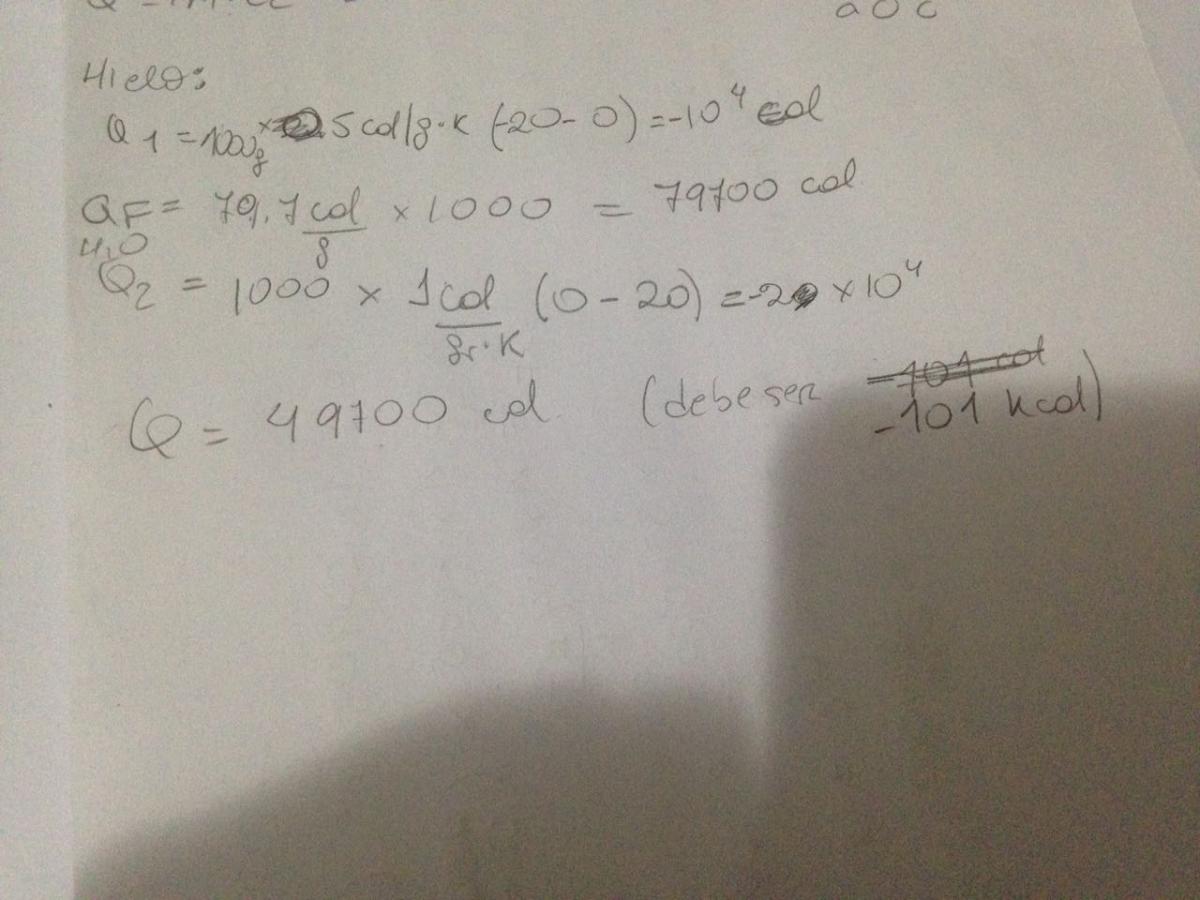 a 0 C
Hielo:
Q1 = 1000g × 0.5 cal/g·K (-20-0) = -10⁴ cal
QF = 79,7 cal/g × 1000 = 79700 cal
H2O
Q2 = 1000 × 1 cal/gr·K (0-20) = -2 × 10⁴
Q = 49700 cal (debe ser -101 kcal)